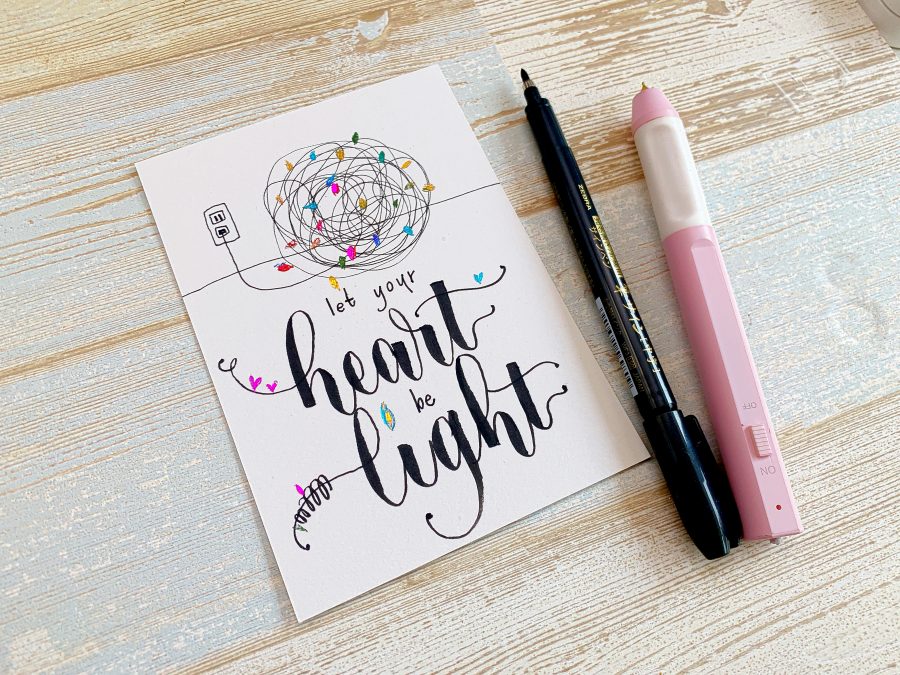 let your
heart
be
light
ZEBRA
OFF
ON